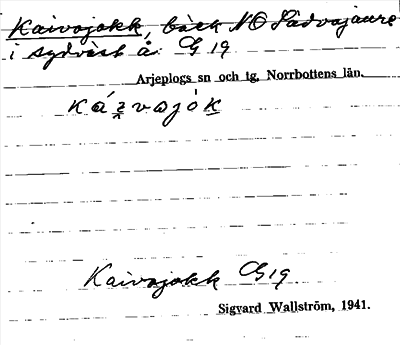 Kaivajokk, bäck NO Sädvajaure
i sydväst å. G 19
Arjeplogs sn och tg, Norrbottens län.
Kaivajokk G 19
Sigvard Wallström, 1941.